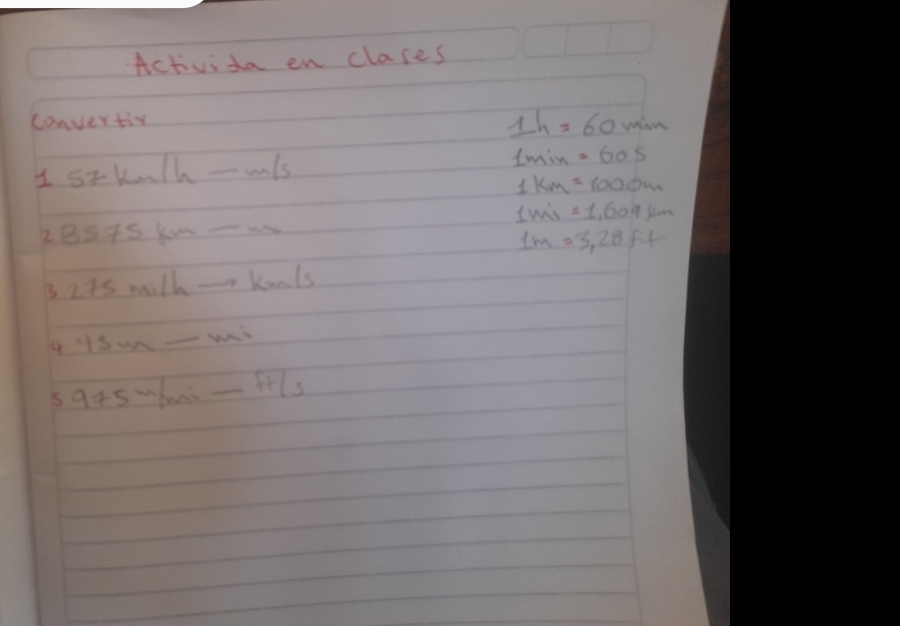 Activida en clases
Convertir
1h = 60 min
1min = 60 s
1 57 km/h — m/s
1 Km = 1000m
1mi = 1,609 km
2 8575 km — m
1m = 3,28 ft
3 275 mi/h → km/s
4 95m — mi
5 975 m/min — ft/s